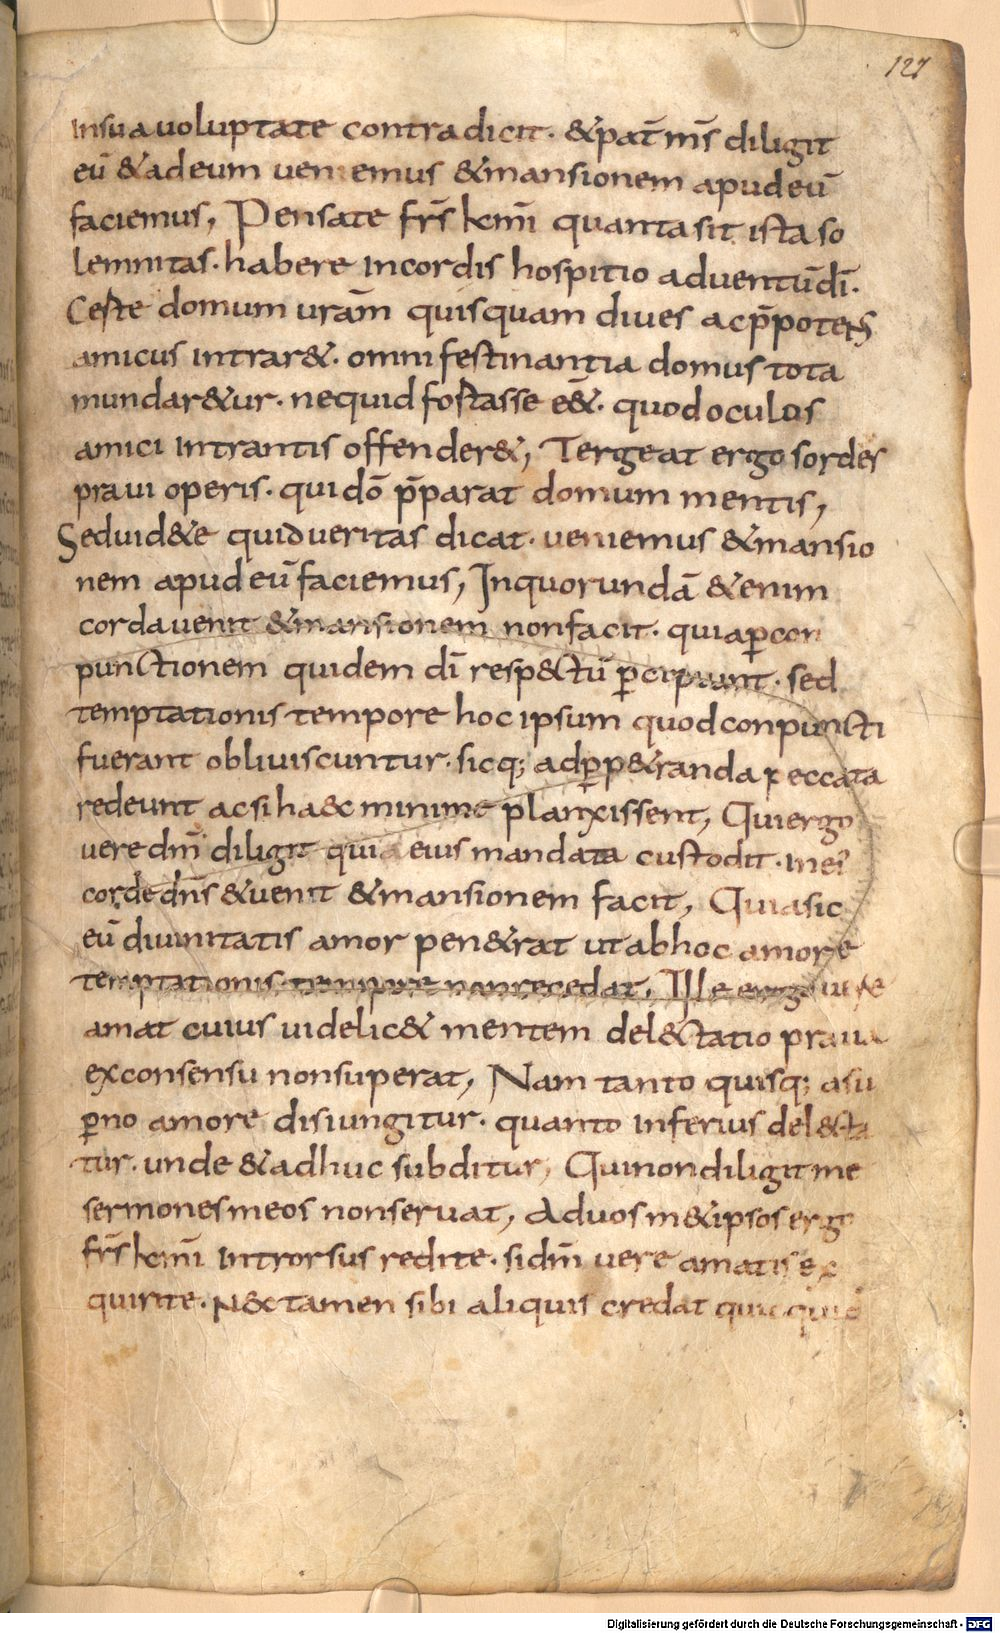 127
insua uoluptate contradicit· &pat̄ m̄s diligit
eū &ad eum ueniemus &mansionem apud eū
faciemus, Pensate fr̄s km̄i quanta sit ista so
lemnitas· habere in cordis hospitio aduentū dī·
Ceste domum uram̄ quisquam diues ac p̄potens
amicus intrar&· omni festinantia domus tota
mundar&ur· nequid fostasse eē&· quod oculos
amici intrantis offender&, Tergeat ergo sordes
praui operis· qui dō p̄parat domum mentis,
Sed uid&e quid ueritas dicat· ueniemus &mansio
nem apud eū faciemus, In quorundā &enim
corda uenit &mansionem non facit· quia p̱ con
punctionem quidem dī resp&ctū p̱cipiunt· sed
temptationis tempore hoc ipsum quod conpuncti
fuerant obliuiscuntur· sicq; ad p̱p&randa peccata
redeunt ac si haec minime planxissent, Qui ergo
uere dm̄ diligit qui eius mandata custodit· in ei'
corde dn̄s &uenit &mansionem facit, Quia sic
eū diuinitatis amor pen&rat ut ab hoc amore
temptationis tempore non recedat, Ille ergo uere
amat cuius uidelic& mentem del&ctatio praua
ex consensu non superat, Nam tanto quisq; a su
p̱no amore disiungitur· quanto inferius del&cta
tur· unde &adhuc subditur, Qui non diligit me
sermones meos non seruat, Ad uos m&ipsos ergo
fr̄s km̄i introrsus redite· si dm̄ uere amatis ex
quirite· N&c tamen sibi aliquis credat quicquid
Digitalisierung gefördert durch die Deutsche Forschungsgemeinschaft - DFG